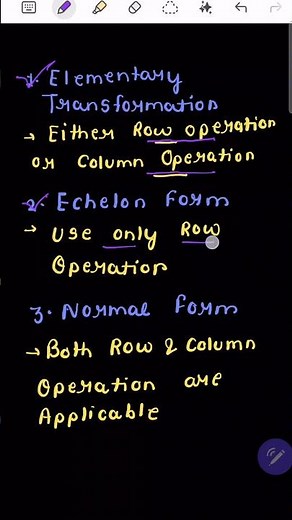 1. Elementary
Transformation
→ Either Row operation
or Column Operation
2. Echelon Form
→ Use only Row
Operation
3. Normal Form
→ Both Row & Column
Operation are
Applicable